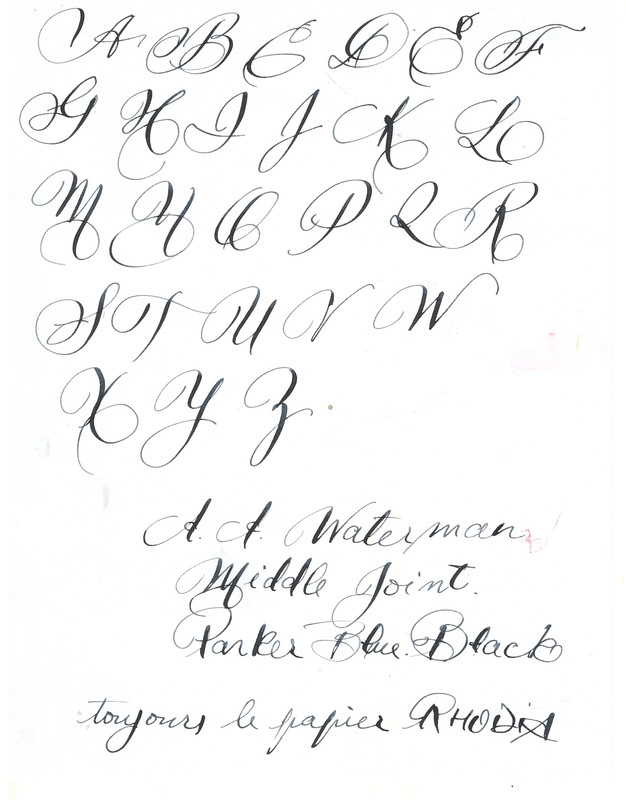 A B C D E F
G H I J K L
M N O P Q R
S T U V W
X Y Z
A. A. Waterman
Middle Joint.
Parker Blue. Black
toujours le papier RHODIA